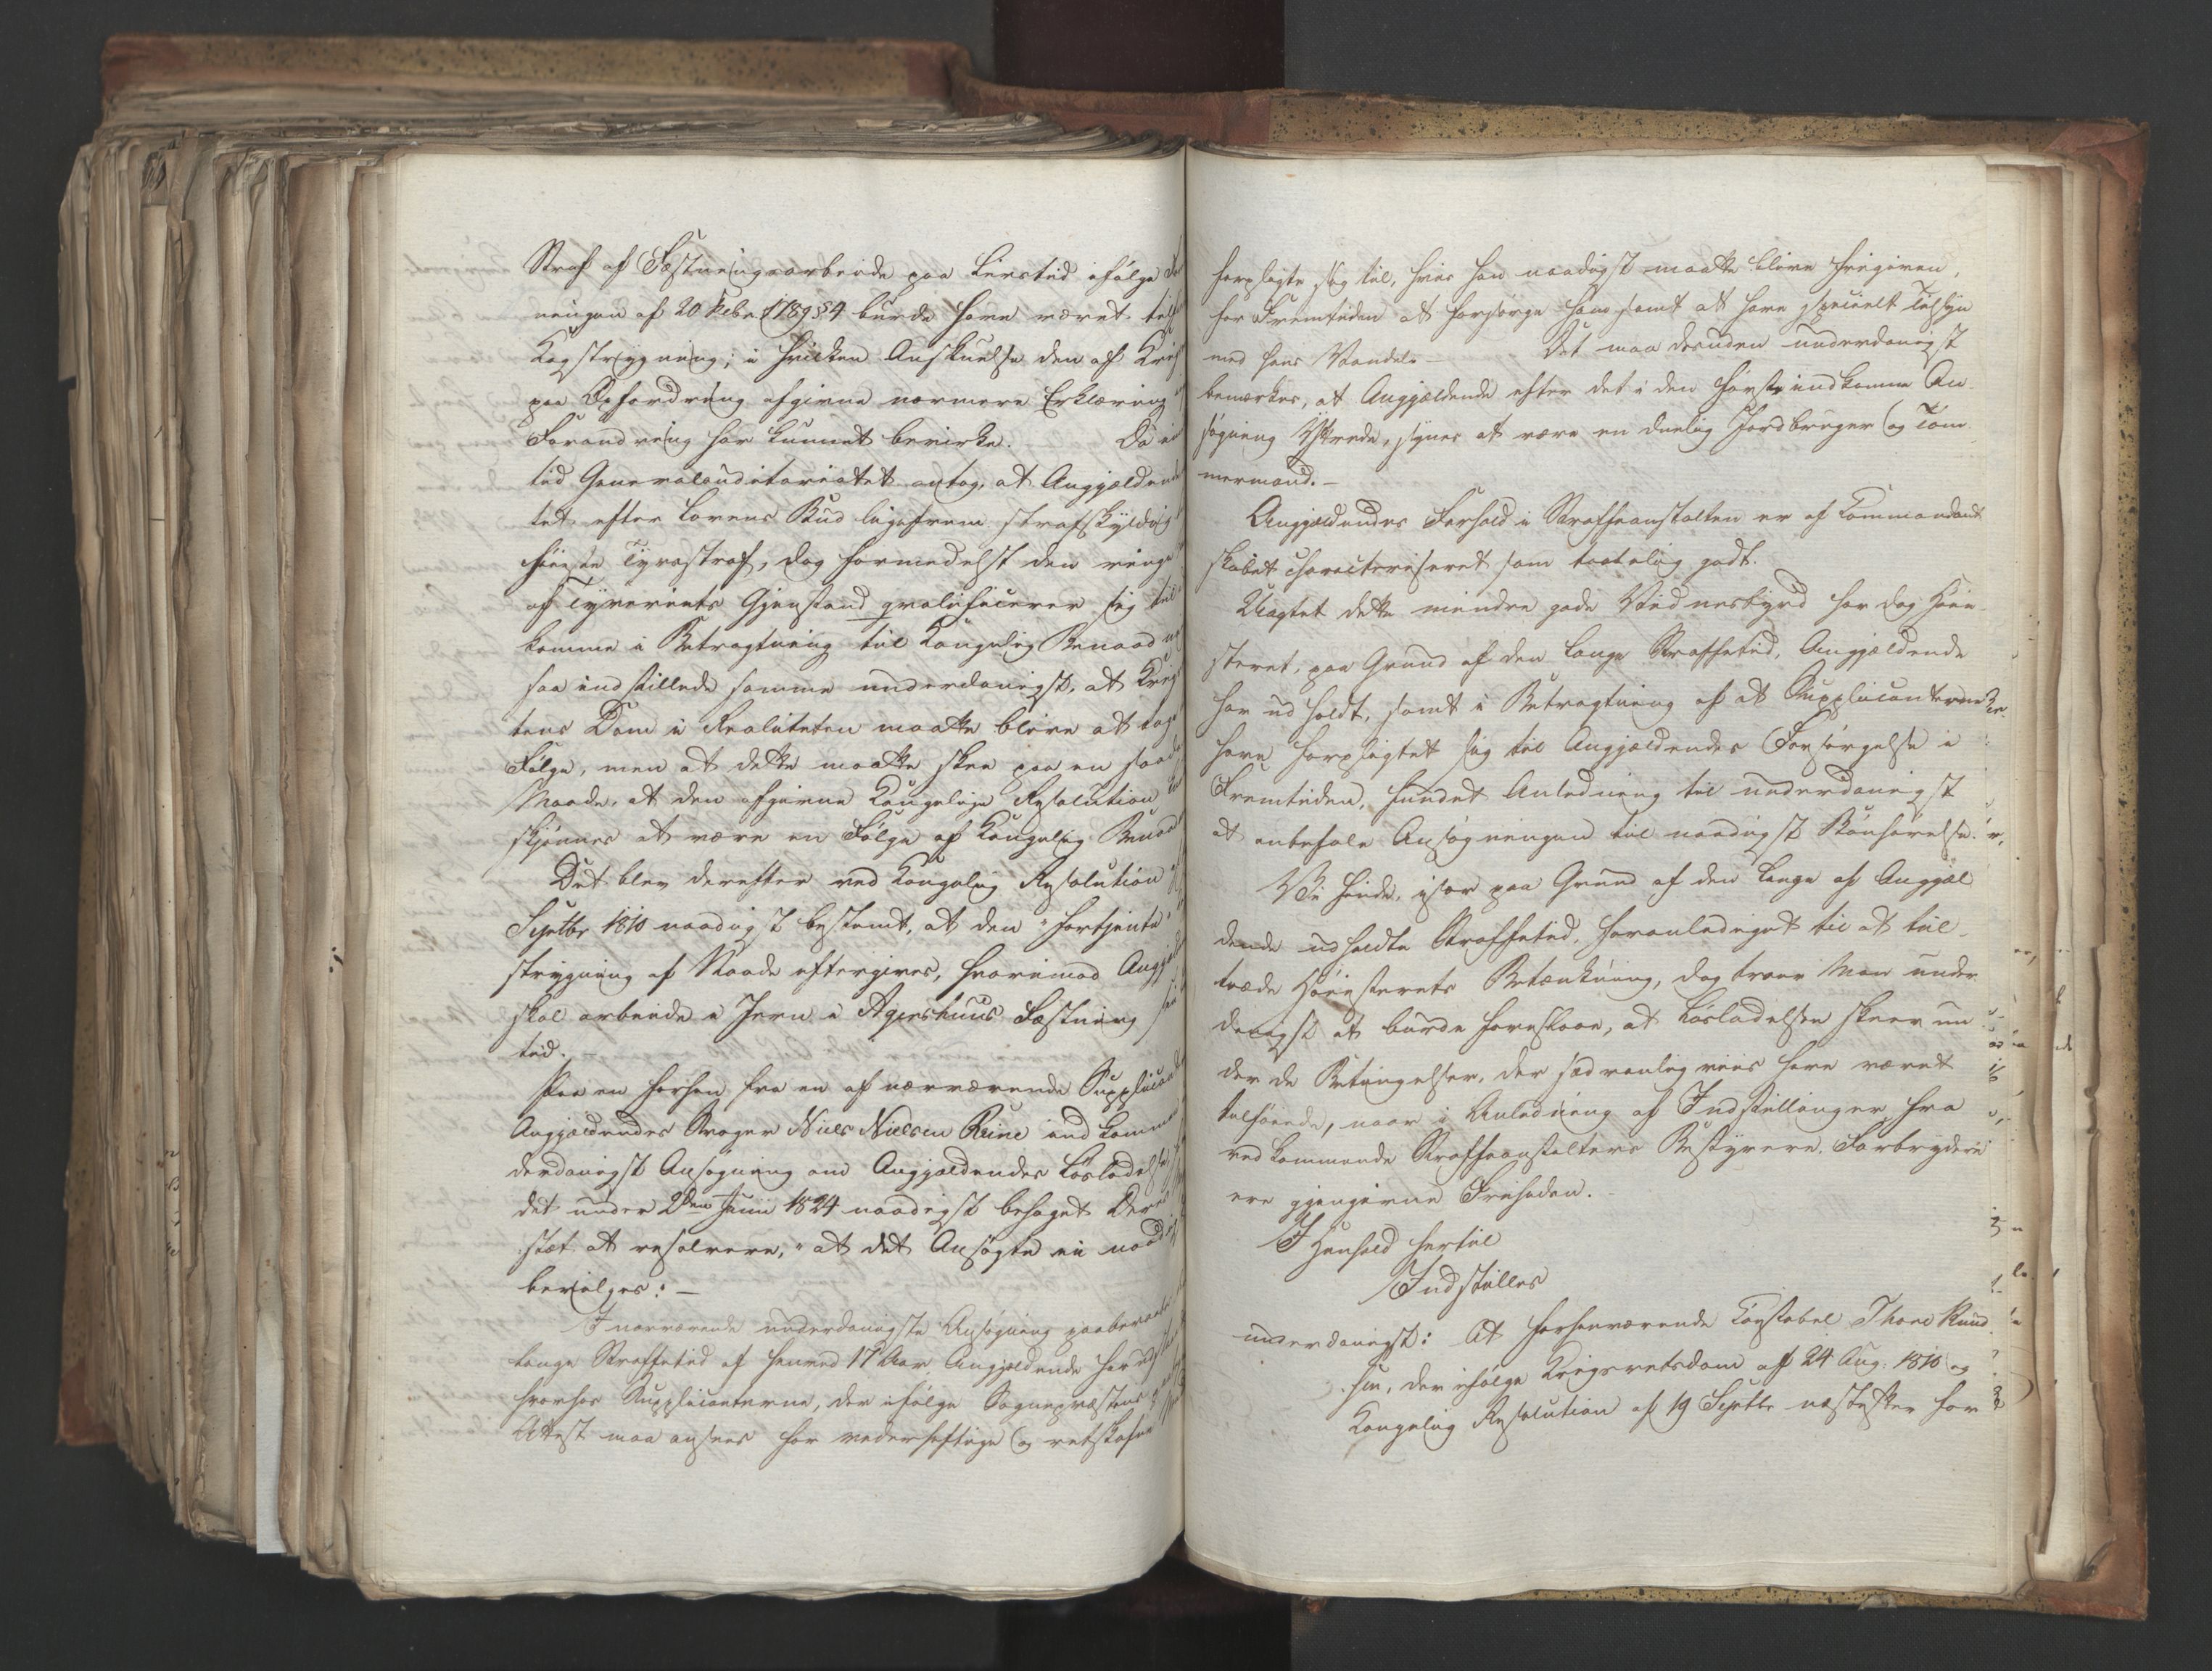 Straf af Fæstningsarbeide paa Livstid ifølge
ningen af 20 Febr. 1789 §4 burde have været
Kagstrygning; i hvilken Anskuelse den af
paa Opfordring afgivne nærmere Erklæring
Forandring har kunnet bevirke. Da
tid Generalauditoriatet antog, at Angjældende
tet, efter Lovens Bud ligefrem strafskyldig
høieste Tyvsstraf, dog formedelst den ringe
af Tyveriets Gjenstand qvalificerer sig til
komme i Betragtning til Kongelig Benaad
saa indstillede samme underdanigst, at Krigs
tens Dom i Realiteten maatte blive at tage
Følge, men at dette maatte skee paa en saad
Maade, at den afgivne Kongelige Resolution
skjønnes at være en Følge af Kongelig Benaad
Det blev derefter ved Kongelig Resolution
Septbr 1810 naadigst bestemt, at den "fortjente
strygning af Naade eftergives, hvorimod Angjæld
skal arbeide i Jern i Agershuus Fæstning
tid. –
Paa en forhen fra en af nærværende Supplicant
Angjældendes Svoger Niels Nielsen Rine indkommen
derdanigst Ansøgning om Angjældendes Løsladelse
det under 2den Junii 1824 naadigst behaget Deres
stæt at resolvere, "at det Ansøgte ei naadigst
bevilges: –
I nærværende underdanigste Ansøgning paaberaabes
lange Straffetid af henved 17 Aar Angjældende har ud
hvorhos Supplicanterne, der ifølge Sognepræstens
Attest maa ansees for vederheftige og retskafne
forpligte sig til, hvis han naadigst maatte blive frigiven,
for Fremtiden at forsørge ham samt at have specielt Tilsyn
med hans Vandel. – Det maa desuden underdanigst
bemærkes, at Angjældende efter det i den første indkomne An-
søgning Yttrede, synes at være en duelig Jordbruger og Tøm-
mermand. –
Angjældendes Forhold i Straffeanstalten er af Commandant-
skabet characteriseret som taalelig godt.
Uagtet dette mindre gode Vidnesbyrd har dog Høie-
steret, paa Grund af den lange Straffetid, Angjældende
har udholdt, samt i Betragtning af at Supplicanterne
have forpligtet sig til Angjældendes Forsørgelse i
Fremtiden, fundet Anledning til underdanigst
at anbefale Ansøgningen til naadigst Bønhørelse.
Vi finde, især paa Grund af den lange af Angjæl-
dende udholdte Straffetid, foranlediget til at til-
træde Høiesterets Betænkning, dog troer Man under-
danigst at burde foreslaae, at Løsladelsen skeer un-
der de Betingelser, der sædvanligviis have været
tilføiede, naar i Anledning af Indstillinger fra
vedkommende Straffeanstalters Bestyrere, Forbrydere
ere gjengivne Friheden. –
I Henhold hertil
Indstilles
underdanigst: At forhenværende Constabel Thore Knud-
sen, der ifølge Krigsretsdom af 24 Aug. 1810 og
Kongelig Resolution af 19 Septbr næstefter for